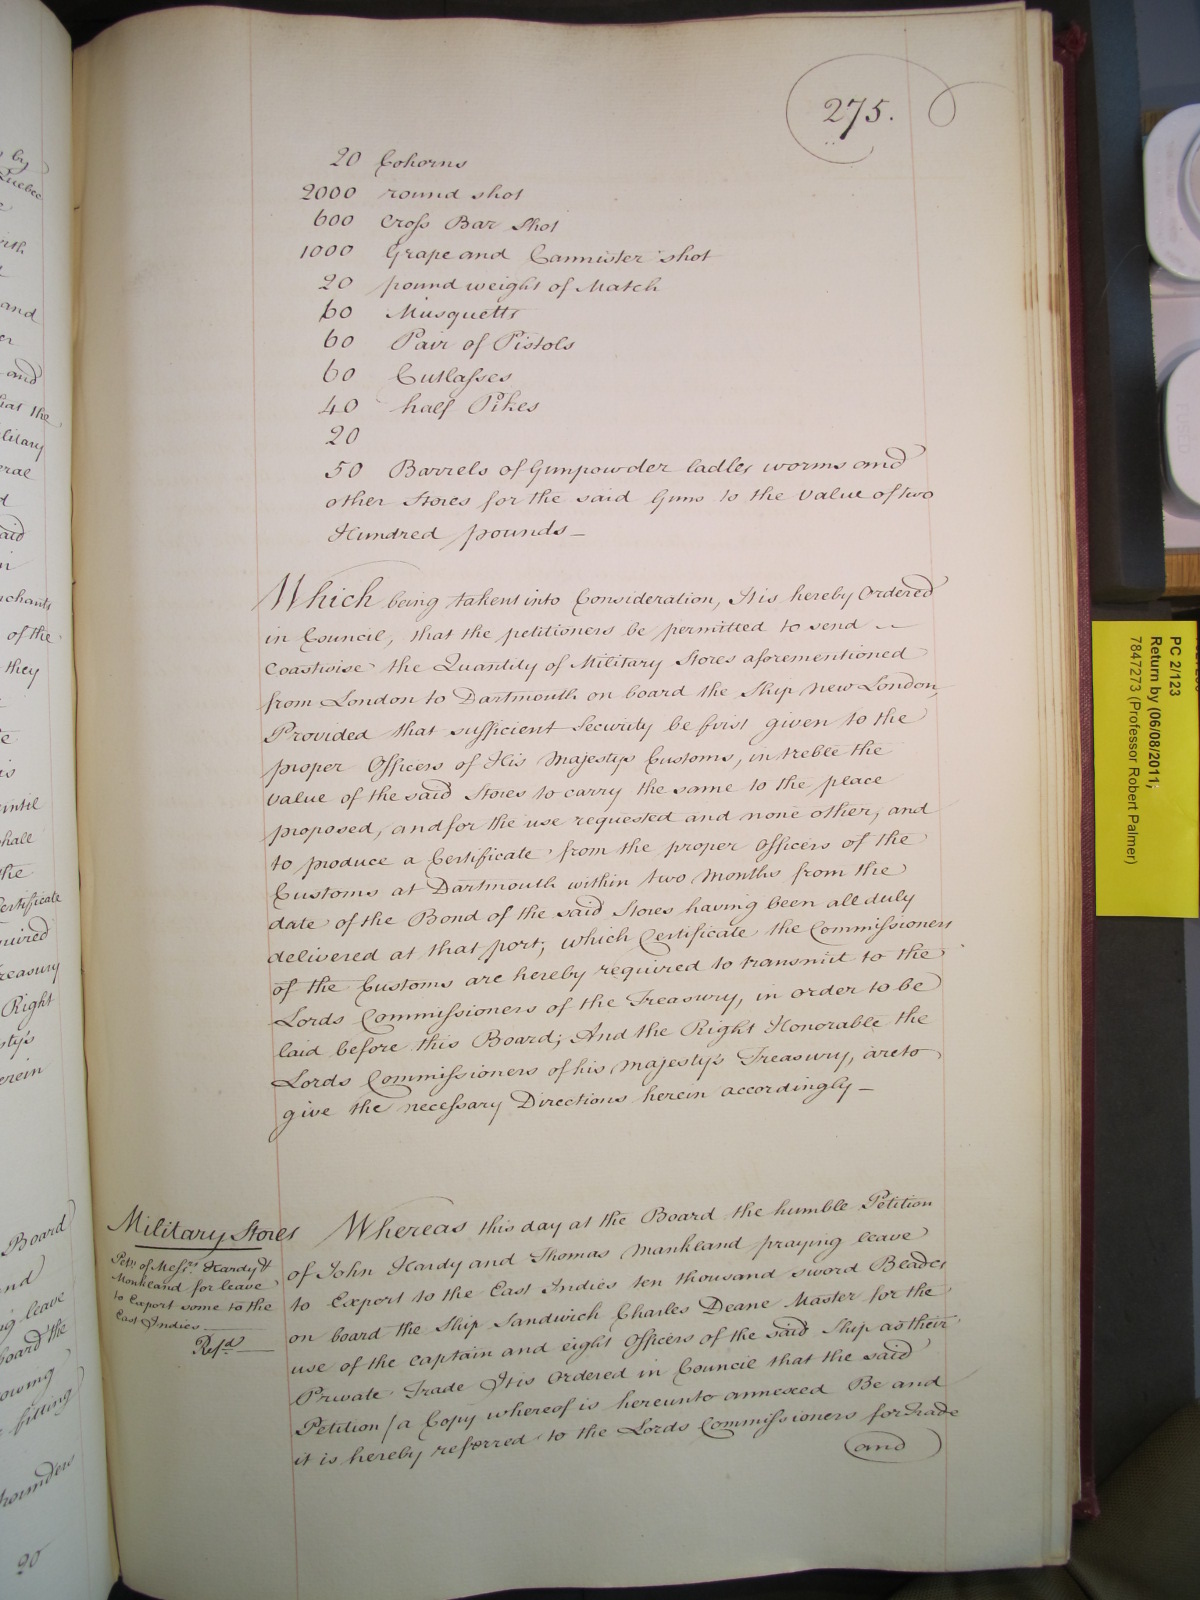 275.
20 Cohorns
2000 round shot
600 Cross Bar Shot
1000 Grape and Cannister shot
20 pound weight of Match
60 Musquetts
60 Pair of Pistols
60 Cutlasses
40 half Pikes
20
50 Barrels of Gunpowder ladles worms and
other Stores for the said Guns to the value of two
Hundred pounds —
Which being taken into Consideration, It is hereby Ordered
in Council, that the petitioners be permitted to send
Coastwise the Quantity of Military Stores aforementioned
from London to Dartmouth on board the Ship New London,
Provided that sufficient Security be first given to the
proper Officers of His Majestys Customs, in treble the
value of the said Stores to carry the same to the place
proposed, and for the use requested and none other, and
to produce a Certificate from the proper Officers of the
Customs at Dartmouth within two Months from the
date of the Bond of the said Stores having been all duly
delivered at that port; which Certificate the Commissioners
of the Customs are hereby required to transmit to the
Lords Commissioners of the Treasury, in order to be
laid before this Board; And the Right Honorable the
Lords Commissioners of his Majesty's Treasury, are to
give the necessary Directions herein accordingly —
Military Stores
Petn. of Messrs. Hardy &
Monkland for leave
to Export some to the
East Indies
Refd.
Whereas this day at the Board the humble Petition
of John Hardy and Thomas Mankland praying leave
to Export to the East Indies ten thousand sword Blades
on board the Ship Sandwich Charles Deane Master for the
use of the Captain and eight Officers of the said Ship as their
Private Trade It is Ordered in Council that the said
Petition /a Copy whereof is hereunto annexed Be and
it is hereby referred to the Lords Commissioners for Trade
and
PC 2/123
Return by (06/08/2011;
7847273 (Professor Robert Palmer)